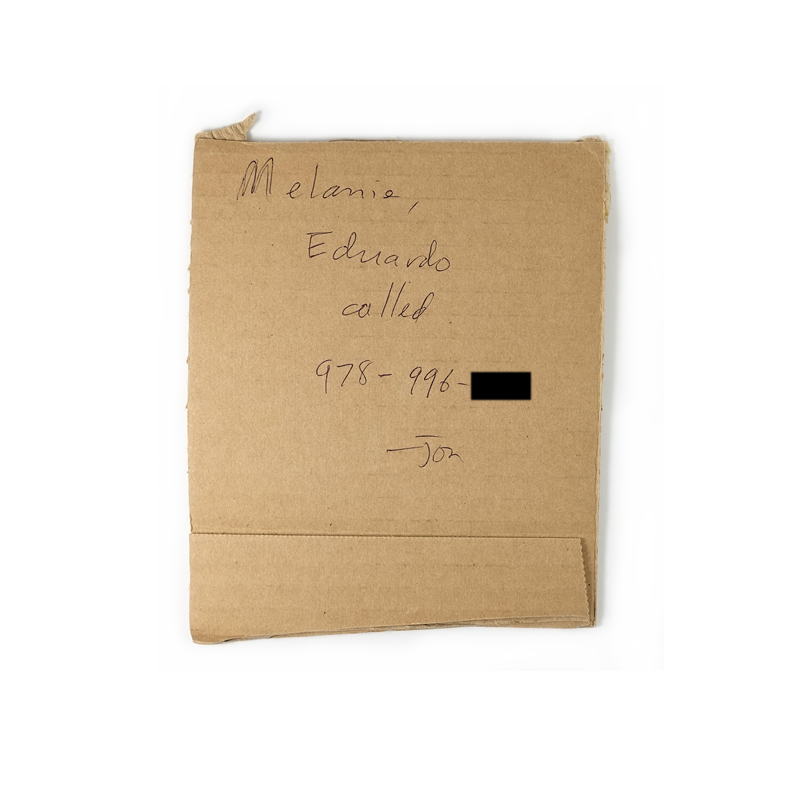 Melanie,
Eduardo
called
978-996-
—Jon